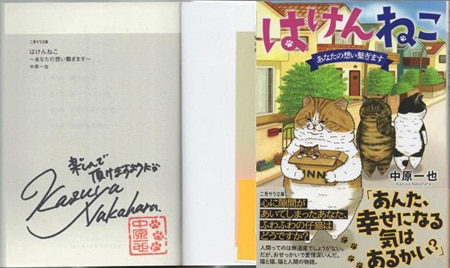 二見サラ文庫
はけんねこ
~あなたの想い繋ぎます~
中原一也
楽しんで
頂けますように
Kazuya
Nakahara.
中原一也
はけんねこ
あなたの想い繋ぎます
INN
中原一也
Kazuya Nakahara
二見サラ文庫
心に隙間が
あいてしまったあなた、
ふわふわの仔猫は
どうですか?
人間ってのは無遠慮でしょうがない。
だが、おせっかいで愛情深いんだ。
猫と猫、猫と人間の物語。
「あんた、
幸せになる
気は
あるかい?」